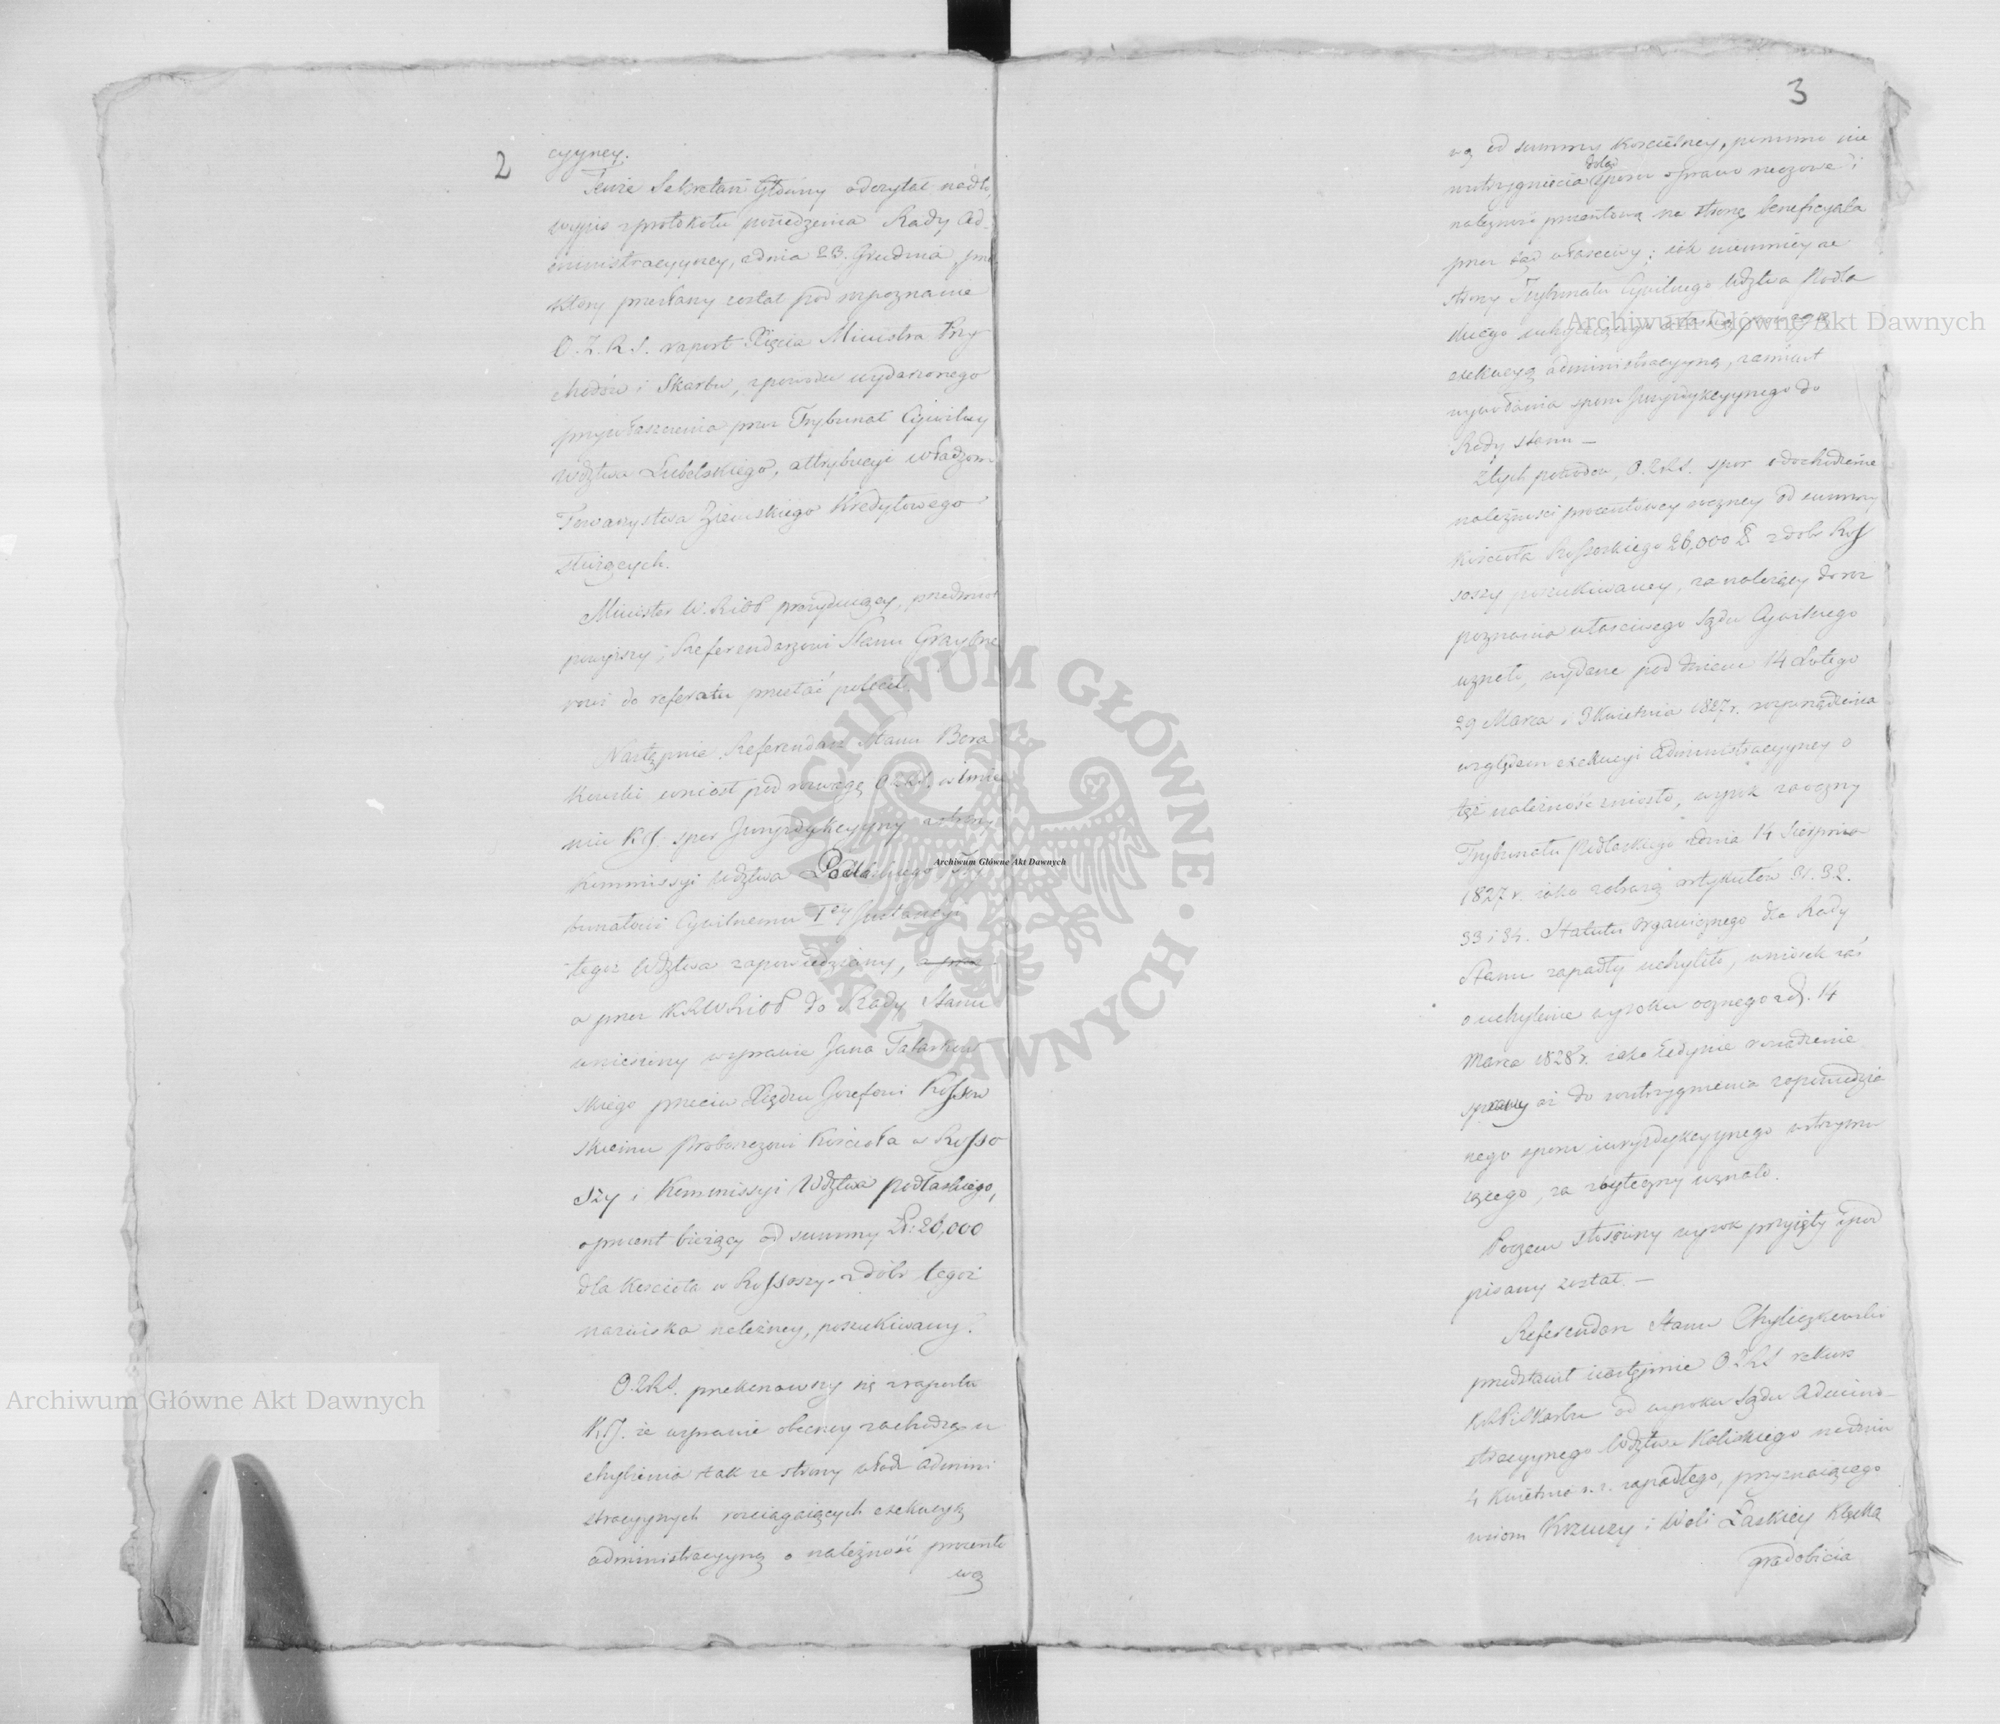 2
cyyney.
Tenże Sekretarz Główny odczytał nadto,
wypis z protokołu posiedzenia Rady Ad-
ministracyyney, z dnia 23. Grudnia
który przesłany został pod rozpoznanie
O.Z.R.S. raport Xięcia Ministra Przy
chodów i Skarbu, z powodu wydarzonego
przywłaszczenia przez Trybunał Cywilny
Wdztwa Lubelskiego, attrybucyi władzom
Towarzystwa Ziemskiego Kredytowego
służących.
Minister W. R i O P prezyduiący, przedmiot
powyższy, Referendarzowi Stanu Graybne
rowi do referatu przesłać polecił.
Następnie Referendarz Stanu Bora
kowski wniosł pod rozwagę O.Z.R.S. w Imie
niu K.J. spor Juryzdykcyyny z strony
Kommissyi Wdztwa Podlaskiego Try
bunałowi Cywilnemu Iey Instancyi
tegoż Wdztwa zapowiedziany,
a przez KRWRiOP do Rady Stanu
wniesiony w sprawie Jana Tatarkow
skiego przeciw Xiędzu Jozefowi Rossow
skiemu Proboszczowi Kościoła w Rosso
szy i Kommissyi Wdztwa Podlaskiego,
o procent bieżący od summy Zł: 26,000
dla Kościoła w Rossoszy z dóbr tegoż
nazwiska należney, poszukiwany.
O.Z.R.S. przekonawszy się z raportu
K.J. że w sprawie obecney zachodzą u
chybienia tak ze strony władz admini
stracyynych rozciągaiących exekucyą
administracyyną o należność procento
wą
3
wą od summy Kościelney, pomimo nie
rozstrzygnięcia dotąd sporu o prawo rzeczowe i
należność procentową na stronę beneficyata
przez sąd właściwy; iak niemniey ze
strony Trybunału Cywilnego Wdztwa Podla
skiego
exekucyą administracyyną, zamiast
wywołania sporu Juryzdykcyynego do
Rady Stanu —
Z tych powodów, O.Z.R.S. spor o dochodzenie
należności procentowey roczney od summy
Kościoła Rossoskiego 26,000 Zł. z dóbr Ros
soszy poszukiwaney, za należący do roz
poznania właściwego Sądu Cywilnego
uznało, wydane pod dniem 14 Lutego
29 Marca i 3 Kwietnia 1827 r. rozporządzenia
względem exekucyi administracyyney o
tęż należność zniosło, wyrok zaoczny
Trybunału Podlaskiego z dnia 14 Sierpnia
1827 r. iako z obrazą artykułów 31. 32.
33 i 34. Statutu Organicznego dla Rady
Stanu zapadły uchyliło, wniosek zaś
o uchylenie wyroku ocznego z d. 14
Marca 1828 r. iako iedynie prowadzenie
sprawy aż do rozstrzygnienia zapowiedzia
nego sporu iuryzdykcyynego wstrzymu
iącego, za zbyteczny uznało.
Poczem stosowny wyrok przyięty i pod
pisany został. —
Referendarz Stanu Chyliczkowski
przedstawił następnie O.Z.R.S. rekurs
KRPiSkarbu od wyroku Sądu Admini-
stracyynego Wdztwa Kaliskiego na dniu
4 Kwietnia r. z. zapadłego, przyznaiącego
wsiom Krzuczy i Woli Łaskiey Klęską
gradobicia
Archiwum Główne Akt Dawnych
Archiwum Główne Akt Dawnych
Archiwum Główne Akt Dawnych
ARCHIWUM GŁÓWNE • AKT DAWNYCH •